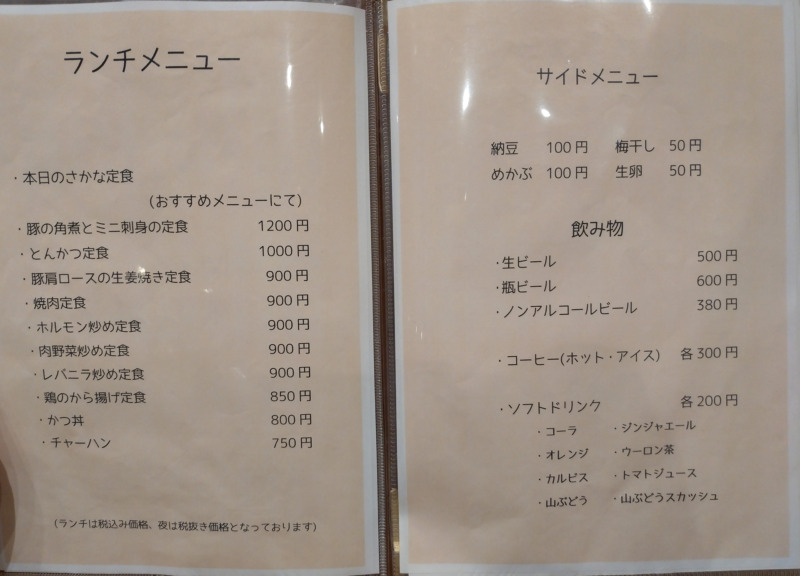 ランチメニュー
・本日のさかな定食
(おすすめメニューにて)
・豚の角煮とミニ刺身の定食 1200円
・とんかつ定食 1000円
・豚肩ロースの生姜焼き定食 900円
・焼肉定食 900円
・ホルモン炒め定食 900円
・肉野菜炒め定食 900円
・レバニラ炒め定食 900円
・鶏のから揚げ定食 850円
・かつ丼 800円
・チャーハン 750円
(ランチは税込み価格、夜は税抜き価格となっております)
サイドメニュー
納豆 100円 梅干し 50円
めかぶ 100円 生卵 50円
飲み物
・生ビール 500円
・瓶ビール 600円
・ノンアルコールビール 380円
・コーヒー(ホット・アイス) 各300円
・ソフトドリンク 各200円
・コーラ ・ジンジャエール
・オレンジ ・ウーロン茶
・カルピス ・トマトジュース
・山ぶどう ・山ぶどうスカッシュ